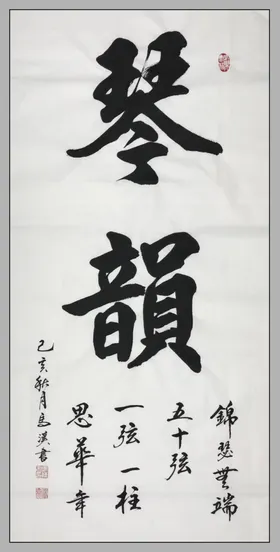 琴韻
錦瑟無端
五十弦
一弦一柱
思華年
己亥秋月馬洪書